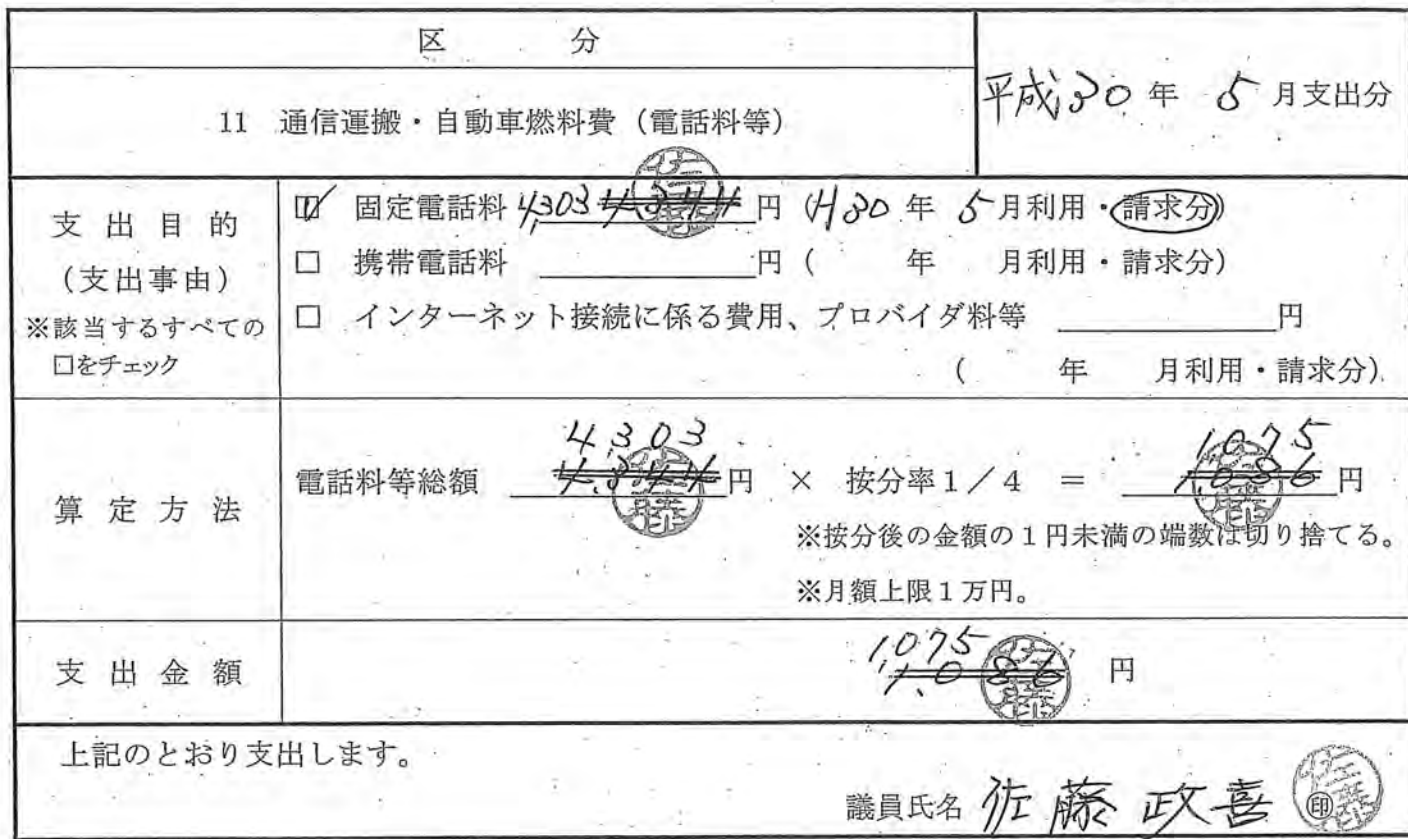 区 分
11 通信運搬・自動車燃料費(電話料等)
平成30年 5月支出分
支出目的
(支出事由)
※該当するすべての
□をチェック
☑ 固定電話料 4,303 4,344 円 (H30年 5月利用・請求分)
□ 携帯電話料 円( 年 月利用・請求分)
□ インターネット接続に係る費用、プロバイダ料等 円
( 年 月利用・請求分)
算定方法
4,303 1,075
電話料等総額 4,344円 × 按分率1/4 = 1,086円
※按分後の金額の1円未満の端数は切り捨てる。
※月額上限1万円。
支出金額
1,075
1,086 円
上記のとおり支出します。
議員氏名 佐藤 政喜 ㊞